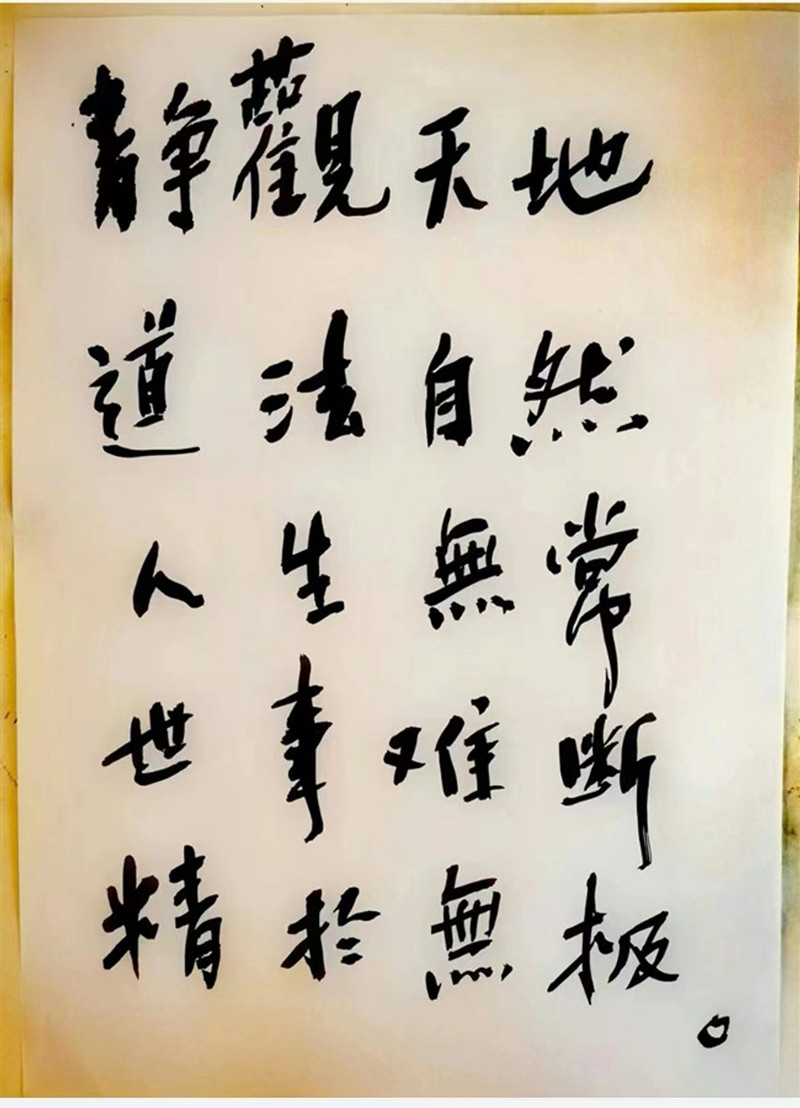 静觀天地
道法自然
人生無常
世事难断
精於無极